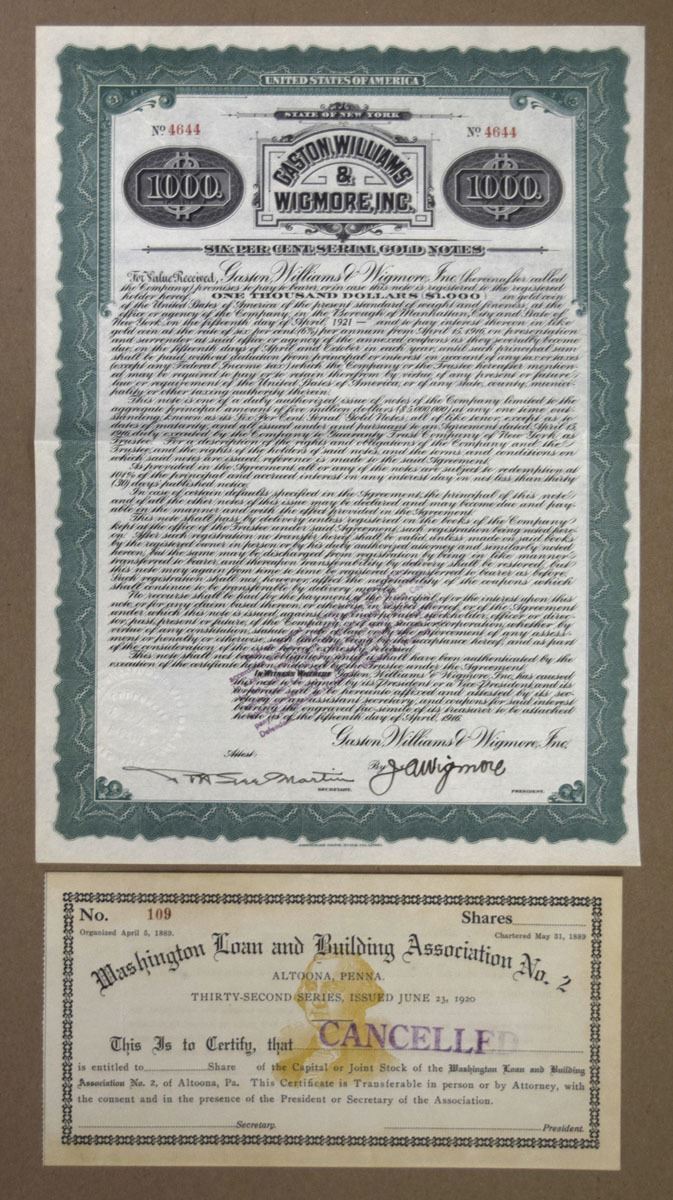 UNITED STATES OF AMERICA
STATE OF NEW YORK
No 4644
No 4644
1000.
1000.
GASTON, WILLIAMS
&
WIGMORE, INC.
SIX PER CENT SERIAL GOLD NOTES
For Value Received, Gaston, Williams & Wigmore, Inc. (hereinafter called
the Company) promises to pay to bearer or in case this note is registered to the registered
holder hereof ONE THOUSAND DOLLARS ($1,000) in gold coin
of the United States of America of the present standard of weight and fineness, at the
office or agency of the Company, in the Borough of Manhattan, City and State of
New York, on the fifteenth day of April, 1921 — and to pay interest thereon in like
gold coin at the rate of six per cent. (6%) per annum from April 15, 1916, on presentation
and surrender at said office or agency of the annexed coupons as they severally become
due on the fifteenth days of April and October in each year, until such principal sum
shall be paid, without deduction from principal or interest on account of any tax or taxes
(except any Federal Income tax) which the Company or the Trustee hereafter mention-
ed may be required to pay or to retain therefrom by virtue of any present or future
law or requirement of the United States of America, or of any state, county, munici-
pality or other taxing authority therein.
This note is one of a duly authorized issue of notes of the Company limited to the
aggregate principal amount of five million dollars ($5,000,000) at any one time out-
standing, known as its Six Per Cent. Serial Gold Notes, all of like tenor, except as to
dates of maturity, and all issued under and pursuant to an Agreement dated April 15,
1916, duly executed by the Company to Guaranty Trust Company of New York, as
Trustee. For a description of the rights and obligations of the Company and the
Trustee, and the rights of the holders of said notes, and the terms and conditions on
which said notes are issued, reference is made to the said Agreement.
As provided in the Agreement all or any of the notes are subject to redemption at
101% of the principal and accrued interest on any interest day on not less than thirty
(30) days published notice.
In case of certain defaults specified in the Agreement, the principal of this note
and of all the other notes of this issue may be declared and may become due and pay-
able in the manner and with the effect provided in the Agreement.
This note shall pass by delivery unless registered on the books of the Company
kept at the office of the Trustee under said Agreement, said registration being noted here-
on. After such registration no transfer hereof shall be valid unless made on said books
by the registered owner in person or by his duly authorized attorney and similarly noted
hereon, but the same may be discharged from registration by being in like manner
transferred to bearer and thereupon transferability by delivery shall be restored, but
this note may again from time to time be registered or transferred to bearer as before.
Such registration shall not, however, affect the negotiability of the coupons which
shall continue to be transferable by delivery merely.
No recourse shall be had for the payment of the principal of or the interest upon this
note, or for any claim based thereon, or otherwise in respect thereof, or of the Agreement
under which this note is issued, against any incorporator, stockholder, officer or direc-
tor, past, present or future, of the Company, or of any successor corporation, whether by
virtue of any constitution, statute or rule of law, or by the enforcement of any assess-
ment or penalty or otherwise, such liability being by the acceptance hereof, and as part
of the consideration of the issue hereof expressly released.
This note shall not become obligatory until it shall have been authenticated by the
execution of the certificate hereon endorsed by the Trustee under the Agreement.
IN WITNESS WHEREOF Gaston, Williams & Wigmore, Inc. has caused
this note to be signed by its President or a Vice-President, and its
corporate seal to be hereunto affixed and attested by its sec-
retary or an assistant secretary, and coupons for said interest
bearing the engraved fac-simile of its treasurer to be attached
hereto as of the fifteenth day of April, 1916.
Gaston, Williams & Wigmore, Inc.
Attest:
By J A Wigmore
SECRETARY.
PRESIDENT.
No. 109
Shares
Organized April 5, 1889.
Chartered May 31, 1889
Washington Loan and Building Association No. 2
ALTOONA, PENNA.
THIRTY-SECOND SERIES, ISSUED JUNE 23, 1920
This Is to Certify, that CANCELLED
is entitled to Share of the Capital or Joint Stock of the Washington Loan and Building
Association No. 2, of Altoona, Pa. This Certificate is Transferable in person or by Attorney, with
the consent and in the presence of the President or Secretary of the Association.
Secretary.
President.